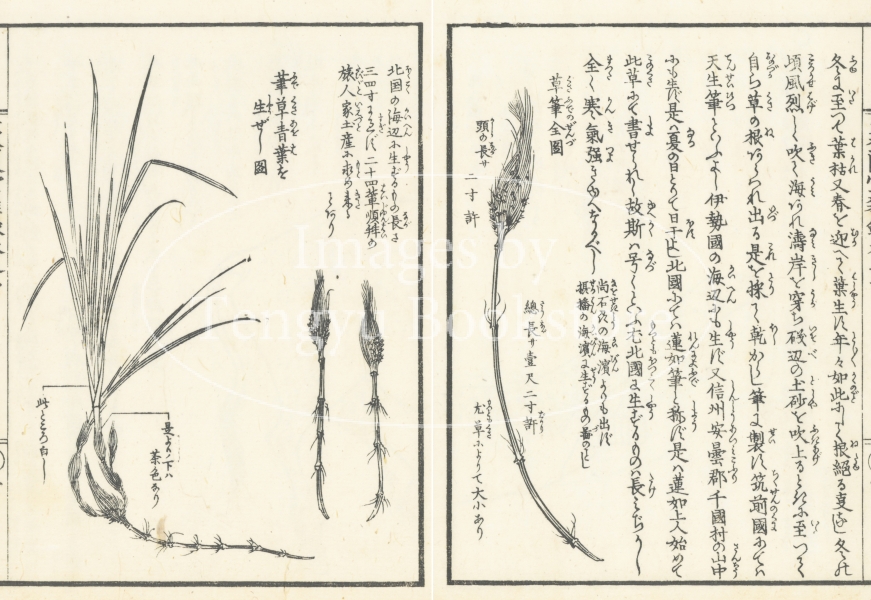 冬に至つて葉枯又春を迎へて葉生ず年々如此にして根絶る事なし冬の
頃風烈しく吹て海あれ濤岸を穿ち磯辺の土砂を吹上るときに至つて
自ら草の根あらはれ出る是を採て乾かし筆に製す筑前國にては
天生筆といふよし伊勢國の海辺にも生ず又信州安曇郡千國村の山中
にも生ず是は夏の日とりて日干に北國にては蓮如筆と称ず是は蓮如上人始めて
此草にて書せられし故斯は号くといふ尤北國に生ずるものは長みぢかし
全く寒氣強きゆへなるべし
尚不
の海濱よりも出ず
摂播の海濱に生ずるもの
草筆全圖
頭の長サ
二寸許
總長サ壹尺二寸許
尤草によりて大小あり
北国の海辺に生ずるもの長さ
三四寸にすぎず二十四輩順拝の
旅人家土産に求め来る
筆草青葉を
生ぜし圖
此ところ白し
是より下は
茶色なり
Images by
Tengyu Bookstore